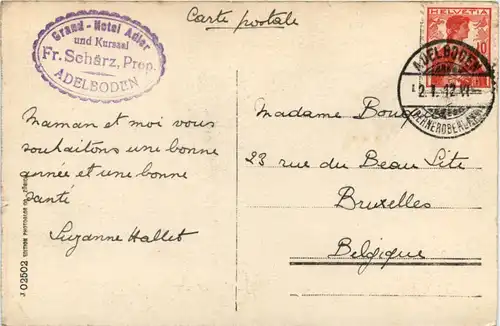 Carte postale
Grand-Hotel Adler
und Kursaal
Fr. Schärz, Prop.
ADELBODEN
HELVETIA
10
ADELBODEN
2.1.12
(BERNEROBERLAND)
Maman et moi vous
souhaitons une bonne
année et une bonne
santé
Suzanne Hallet
Madame
23 rue du Beau Site
Bruxelles
Belgique
J 02502